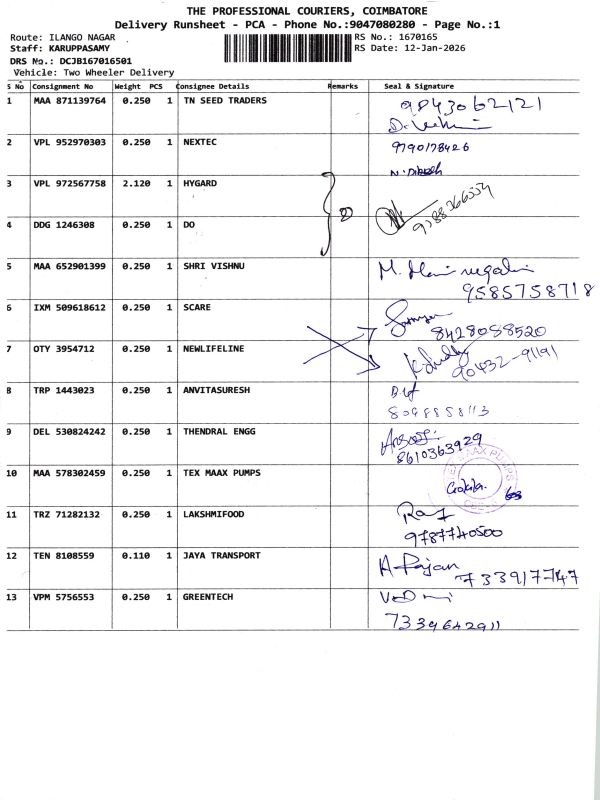 THE PROFESSIONAL COURIERS, COIMBATORE
Delivery Runsheet - PCA - Phone No.:9047080280 - Page No.:1
Route: ILANGO NAGAR RS No.: 1670165
Staff: KARUPPASAMY RS Date: 12-Jan-2026
DRS No.: DCJB167016501
Vehicle: Two Wheeler Delivery
S No Consignment No Weight PCS Consignee Details Remarks Seal & Signature
1 MAA 871139764 0.250 1 TN SEED TRADERS 9843062121
2 VPL 952970303 0.250 1 NEXTEC 9790178426
N. Dinesh
3 VPL 972567758 2.120 1 HYGARD
2
4 DDG 1246308 0.250 1 DO
5 MAA 652901399 0.250 1 SHRI VISHNU M.
9585758718
6 IXM 509618612 0.250 1 SCARE
8428058520
7 OTY 3954712 0.250 1 NEWLIFELINE
90432-91191
8 TRP 1443023 0.250 1 ANVITASURESH
9 DEL 530824242 0.250 1 THENDRAL ENGG
8610363929
10 MAA 578302459 0.250 1 TEX MAAX PUMPS TEX MAAX PUMPS
Gokila
11 TRZ 71282132 0.250 1 LAKSHMIFOOD Raj
9787740500
12 TEN 8108559 0.110 1 JAYA TRANSPORT A. Rajan
733917747
13 VPM 5756553 0.250 1 GREENTECH
7339642911